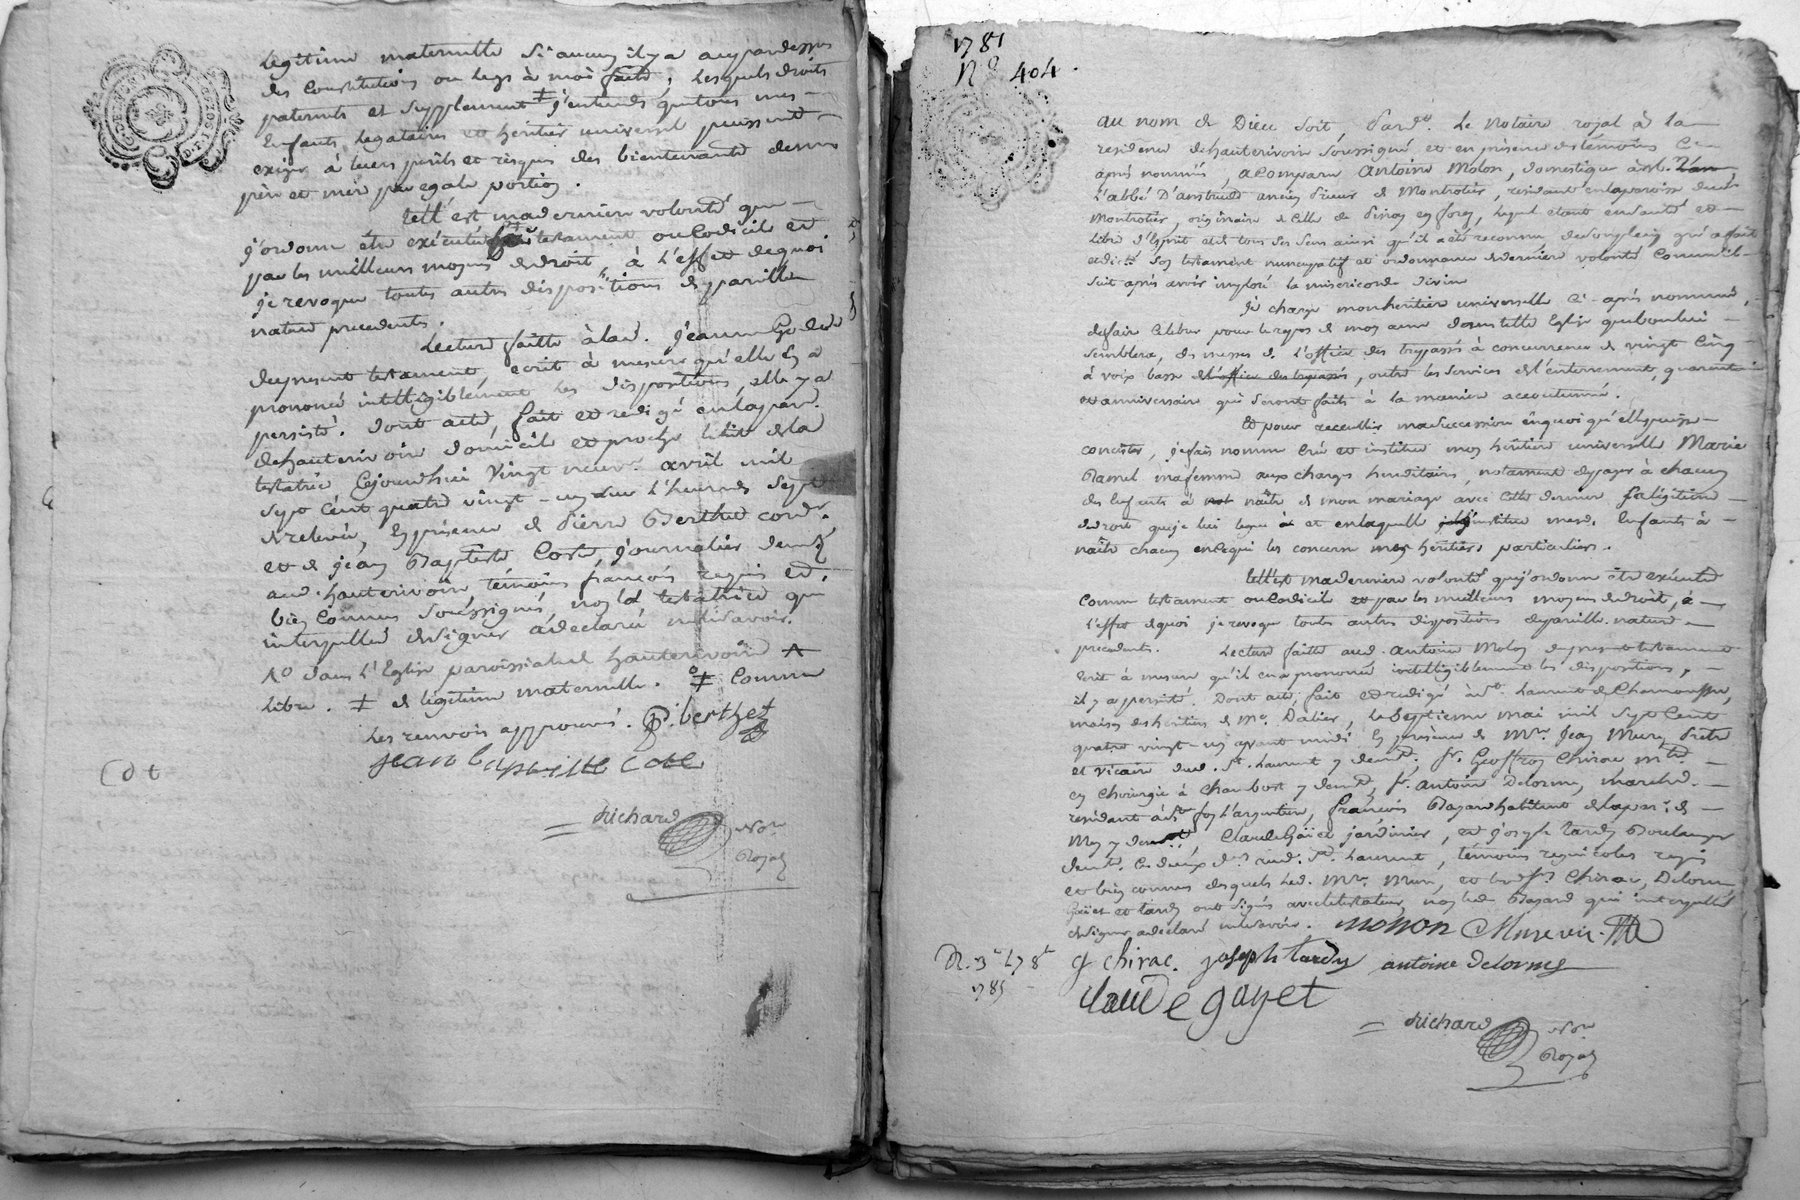 legitime maternelle si aucun il y a au pardessus
des constitutions ou legs à moi faits, lesquels droits
paternels et supplement ‡ j'entends que tous mes
Enfants legataires et heritier universel puissent
exiger à leurs perils et risques des bien tenants de mes
père et mere par egale portion.
tell'est ma derniere volonté que
j'ordonne être exécutée testament ou Codicile et
par les meilleurs moyens de droit, à l'effet de quoi
je revoque toutes autres dispositions de pareille
nature precedents.
Lecture faitte à lad. jeanne
du present testament, ecrit à mesure qu'elle En a
prononcé intelligiblement les dispositions, elle y a
persisté. Dont acte, fait et redigé en la par.
de hauterivoire domicile et proche le lit de la
testatrice Cejourd'hui Vingt neuv. avril mil
sept Cent quatre vingt-un sur l'heure de sept
de relevée, En présence de Pierre Berthet cord.
et de jean Baptiste Cote, journalier dem.
aud. hauterivoire, témoins françois requis et
bien Connus Soussignés, non la testatrice qui
interpellée de signer a declaré ne le savoir.
dans l'Eglise paroissiale d hauterivoire
libre. ‡ de légitime maternelle. ‡ Comme
les renvois approuvés. P. berthet
jean baptiste Cote
Richard
No.re
Royal
1781
N.o 404.
au nom de Dieu soit, Pard.t Le Notaire royal à la
residence de hauterivoire soussigné et en présence des témoins Ci-
après nommés a comparu Antoine Molon, domestique à M.
L'abbé D' ancien Prieur de Montrotier, residant en la paroisse dud.
Montrotier, originaire de Celle de en forez, lequel etant en santé et
libre d'Esprit et de tous ses sens ainsi qu'il a été reconnu de son plein gré a fait
et dicté son testament nuncupatif et ordonnance de derniere volonté Comme il
suit après avoir imploré la misericorde divine
je charge mon heritiere universelle Ci-après nommée,
de faire Celebrer pour le repos de mon ame dans telle Eglise que bon lui
semblera, des messes de l'office des trepassés à concurrence de vingt Cinq
à voix basse de l'office des trepassés, outre les services de l'enterrement, quarantaine
et anniversaire qui seront faits à la maniere accoutumée.
Et pour receuillir ma succession en quoi qu'elle puisse
consister, je fais nomme Crée et institue mon héritiere universelle Marie
ma femme aux charges hereditaires, notament de payer à chacun
des Enfants à naître de mon mariage avec Cette derniere la légitime
de droit que je lui legue et en laquelle j'institue mesd. Enfants à
naître chacun en Ce qui les concerne mes héritiers particuliers.
tell'est ma derniere volonté que j'ordonne être exécutée
Comme testament ou Codicile et par les meilleurs moyens de droit, à
l'effet de quoi je revoque toutes autres dispositions de pareille nature
precedents. Lecture faitte aud. Antoine Molon du present testament
Ecrit à mesure qu'il en a prononcé intelligiblement les dispositions,
il y a persisté. Dont acte, fait et redigé à St. Laurent de Chamousset,
maison des héritiers de Me. Dalier, le septieme mai mil sept Cent
quatre vingt-un avant midi En présence de Mre. Jean Mure, Prêtre
et Vicaire dud. St. Laurent y dem.t, Sr. Geoffroy Chirac, m.tre
en Chirurgie à Chambost y dem.t, Sr. antoine Delorme, marchd.
residant à Ste foy l'argentiere, françois Bayard habitant de la par. de
Mey y dem.t, Claude Gaiet jardinier, et joseph tardy Boulanger
dem.t Ces deux d. aud. St. Laurent, témoins regnicoles requis
et bien connus desquels led. Mre. Mure, et lesd. Srs. Chirac, Delorme
Gaiet et tardy ont signés avec le testateur, non led. Bayard qui interpellé
de signer a declaré ne le savoir. molon Mure vic.
g chirac. joseph tardy antoine delorme
claude gayet
Richard
No.re
Royal